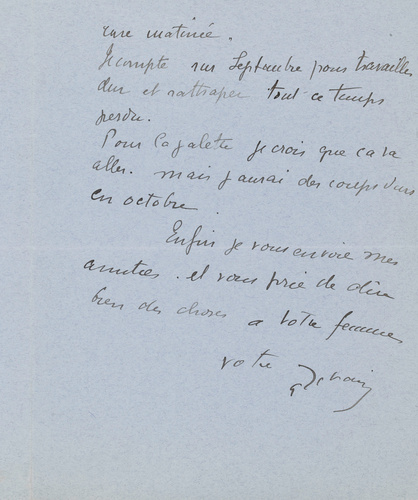 rare matinée.
Je compte sur Septembre pour travailler
dur et rattraper tout ce temps
perdu.
Pour la galette je crois que ça va
aller. mais j'aurai des coups durs
en octobre.
Enfin je vous envoie mes
amitiés. et vous prie de dire
bien des choses a votre femme
votre aDerain